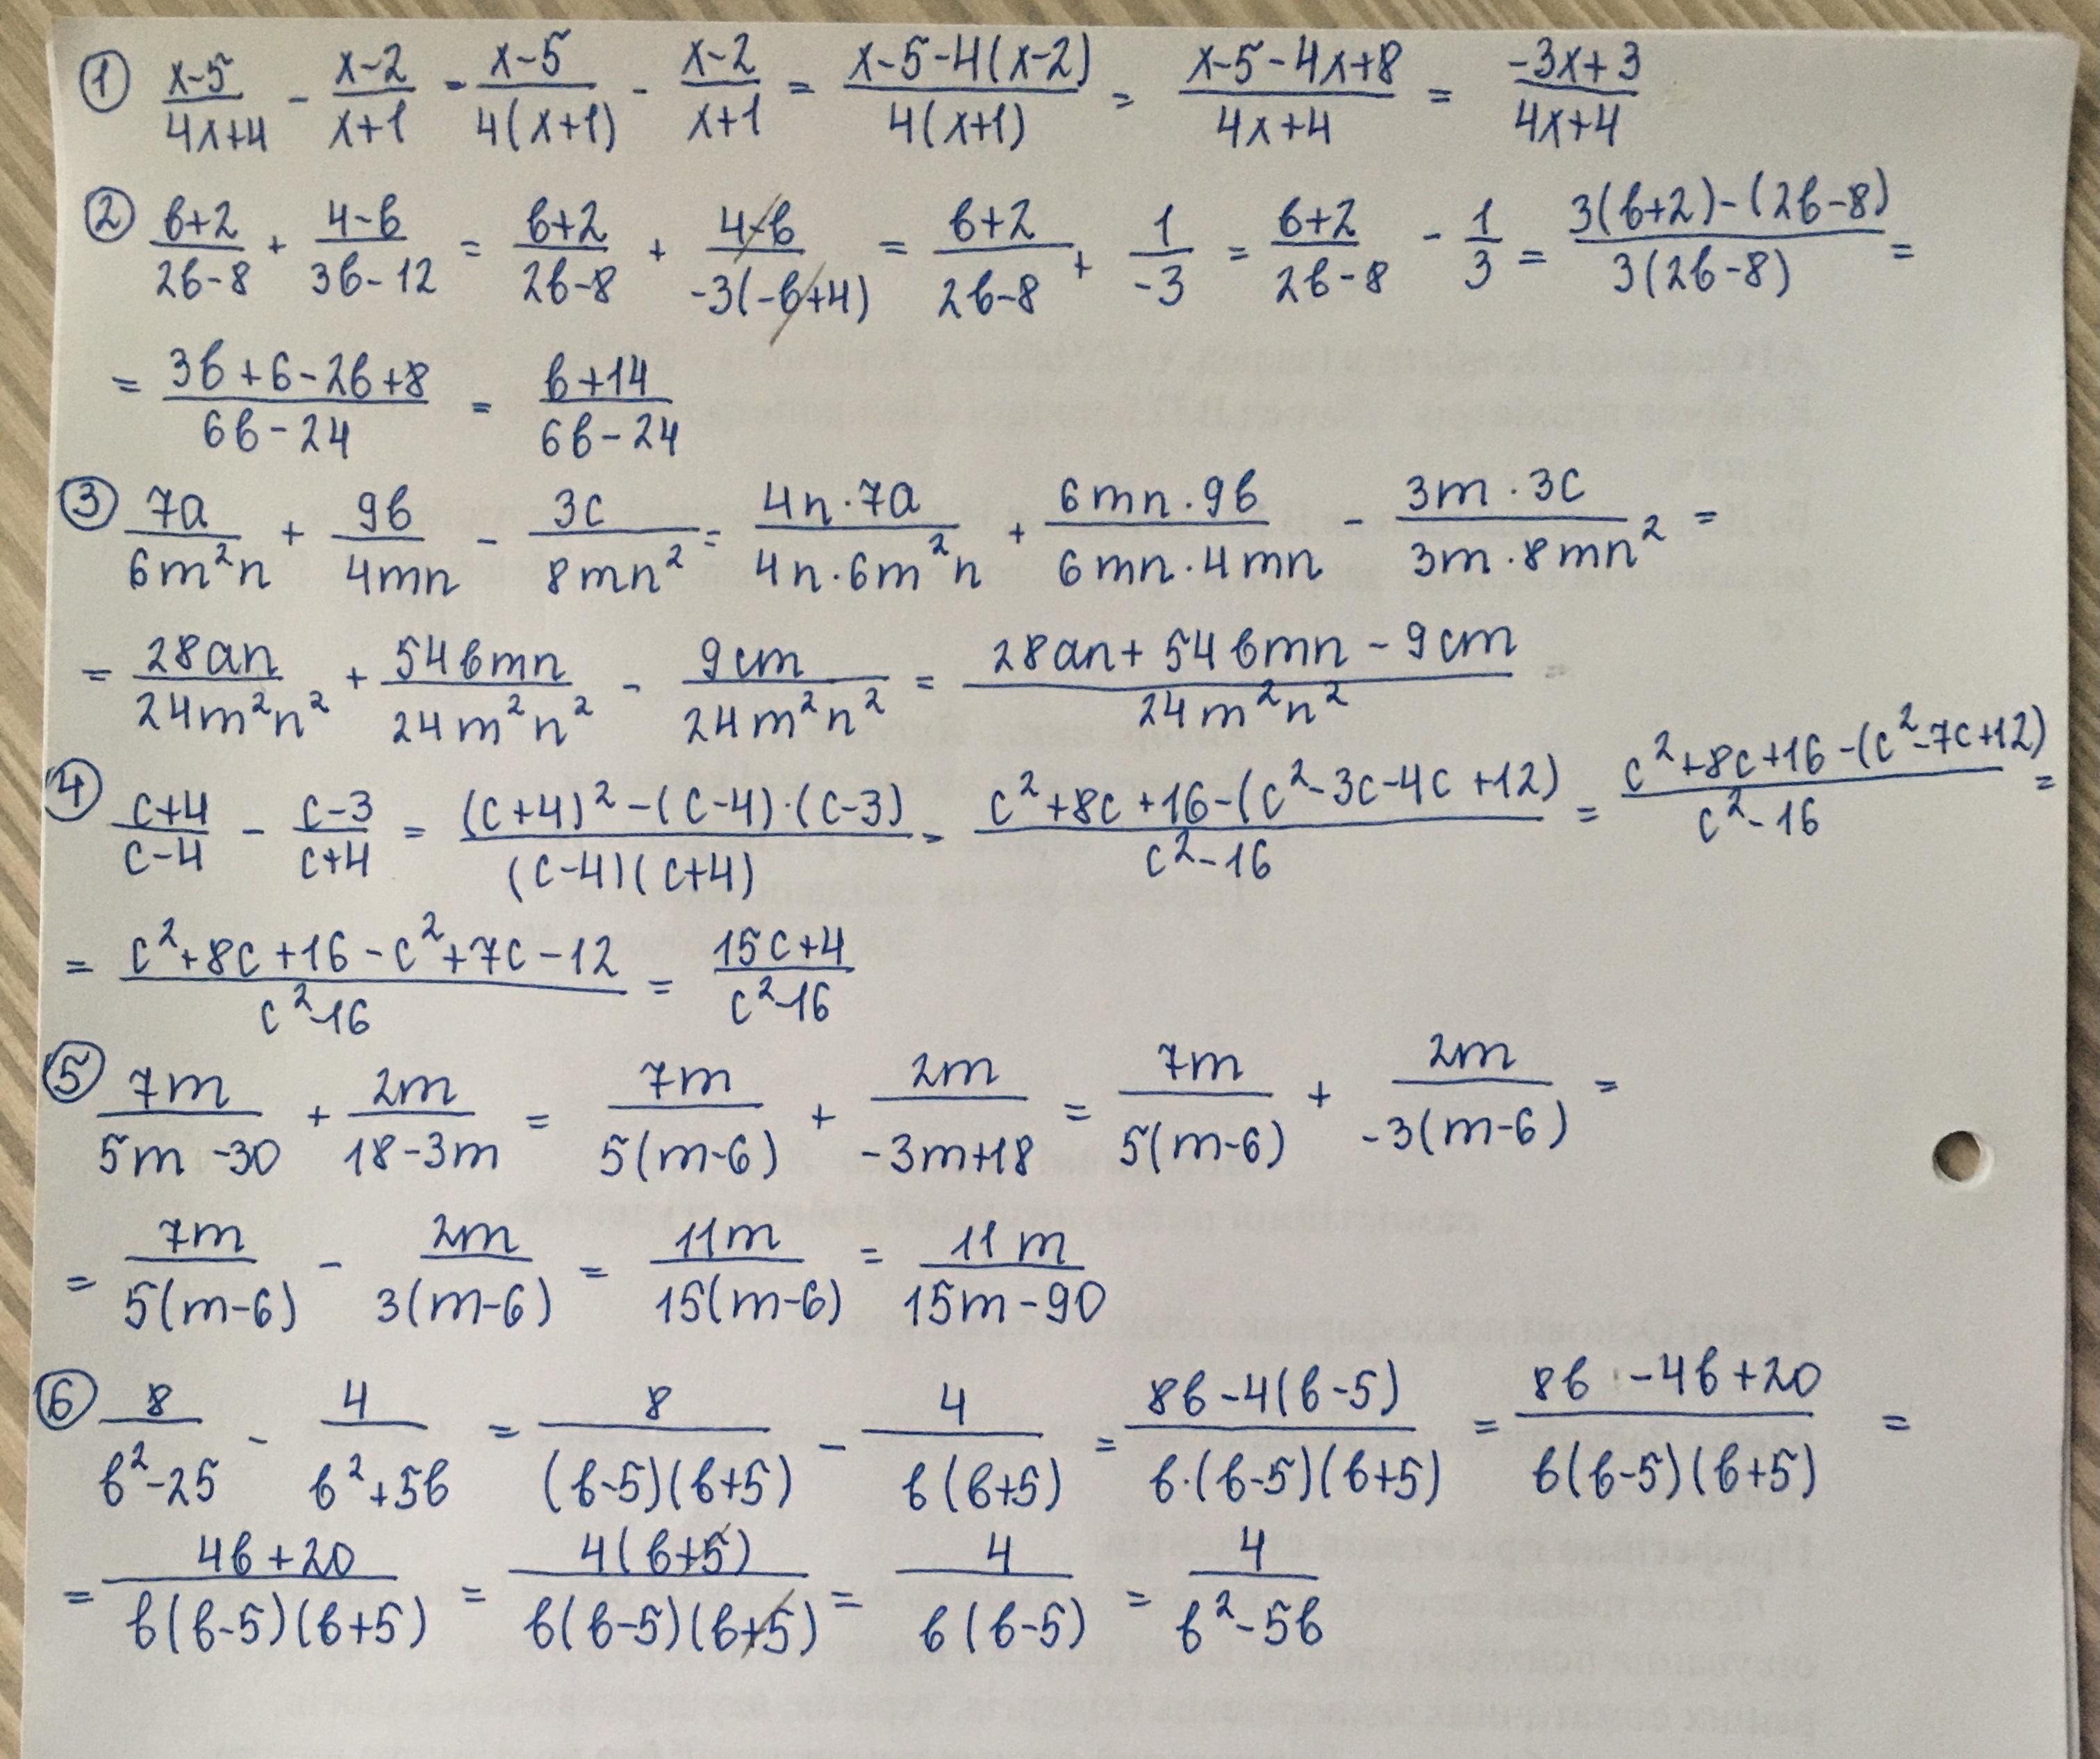 ① (x-5)/(4x+4) - (x-2)/(x+1) = (x-5)/(4(x+1)) - (x-2)/(x+1) = (x-5-4(x-2))/(4(x+1)) = (x-5-4x+8)/(4x+4) = (-3x+3)/(4x+4)
② (в+2)/(2в-8) + (4-в)/(3в-12) = (в+2)/(2в-8) + (4-в)/(-3(-в+4)) = (в+2)/(2в-8) + 1/(-3) = (в+2)/(2в-8) - 1/3 = (3(в+2)-(2в-8))/(3(2в-8)) =
= (3в+6-2в+8)/(6в-24) = (в+14)/(6в-24)
③ 7a/(6m²n) + 9в/(4mn) - 3c/(8mn²) = (4n·7a)/(4n·6m²n) + (6mn·9в)/(6mn·4mn) - (3m·3c)/(3m·8mn²) =
= 28an/(24m²n²) + 54вmn/(24m²n²) - 9cm/(24m²n²) = (28an+54вmn-9cm)/(24m²n²)
④ (c+4)/(c-4) - (c-3)/(c+4) = ((c+4)²-(c-4)·(c-3))/((c-4)(c+4)) = (c²+8c+16-(c²-3c-4c+12))/(c²-16) = (c²+8c+16-(c²-7c+12))/(c²-16) =
= (c²+8c+16-c²+7c-12)/(c²-16) = (15c+4)/(c²-16)
⑤ 7m/(5m-30) + 2m/(18-3m) = 7m/(5(m-6)) + 2m/(-3m+18) = 7m/(5(m-6)) + 2m/(-3(m-6)) =
= 7m/(5(m-6)) - 2m/(3(m-6)) = 11m/(15(m-6)) = 11m/(15m-90)
⑥ 8/(в²-25) - 4/(в²+5в) = 8/((в-5)(в+5)) - 4/(в(в+5)) = (8в-4(в-5))/(в·(в-5)(в+5)) = (8в-4в+20)/(в(в-5)(в+5)) =
= (4в+20)/(в(в-5)(в+5)) = (4(в+5))/(в(в-5)(в+5)) = 4/(в(в-5)) = 4/(в²-5в)